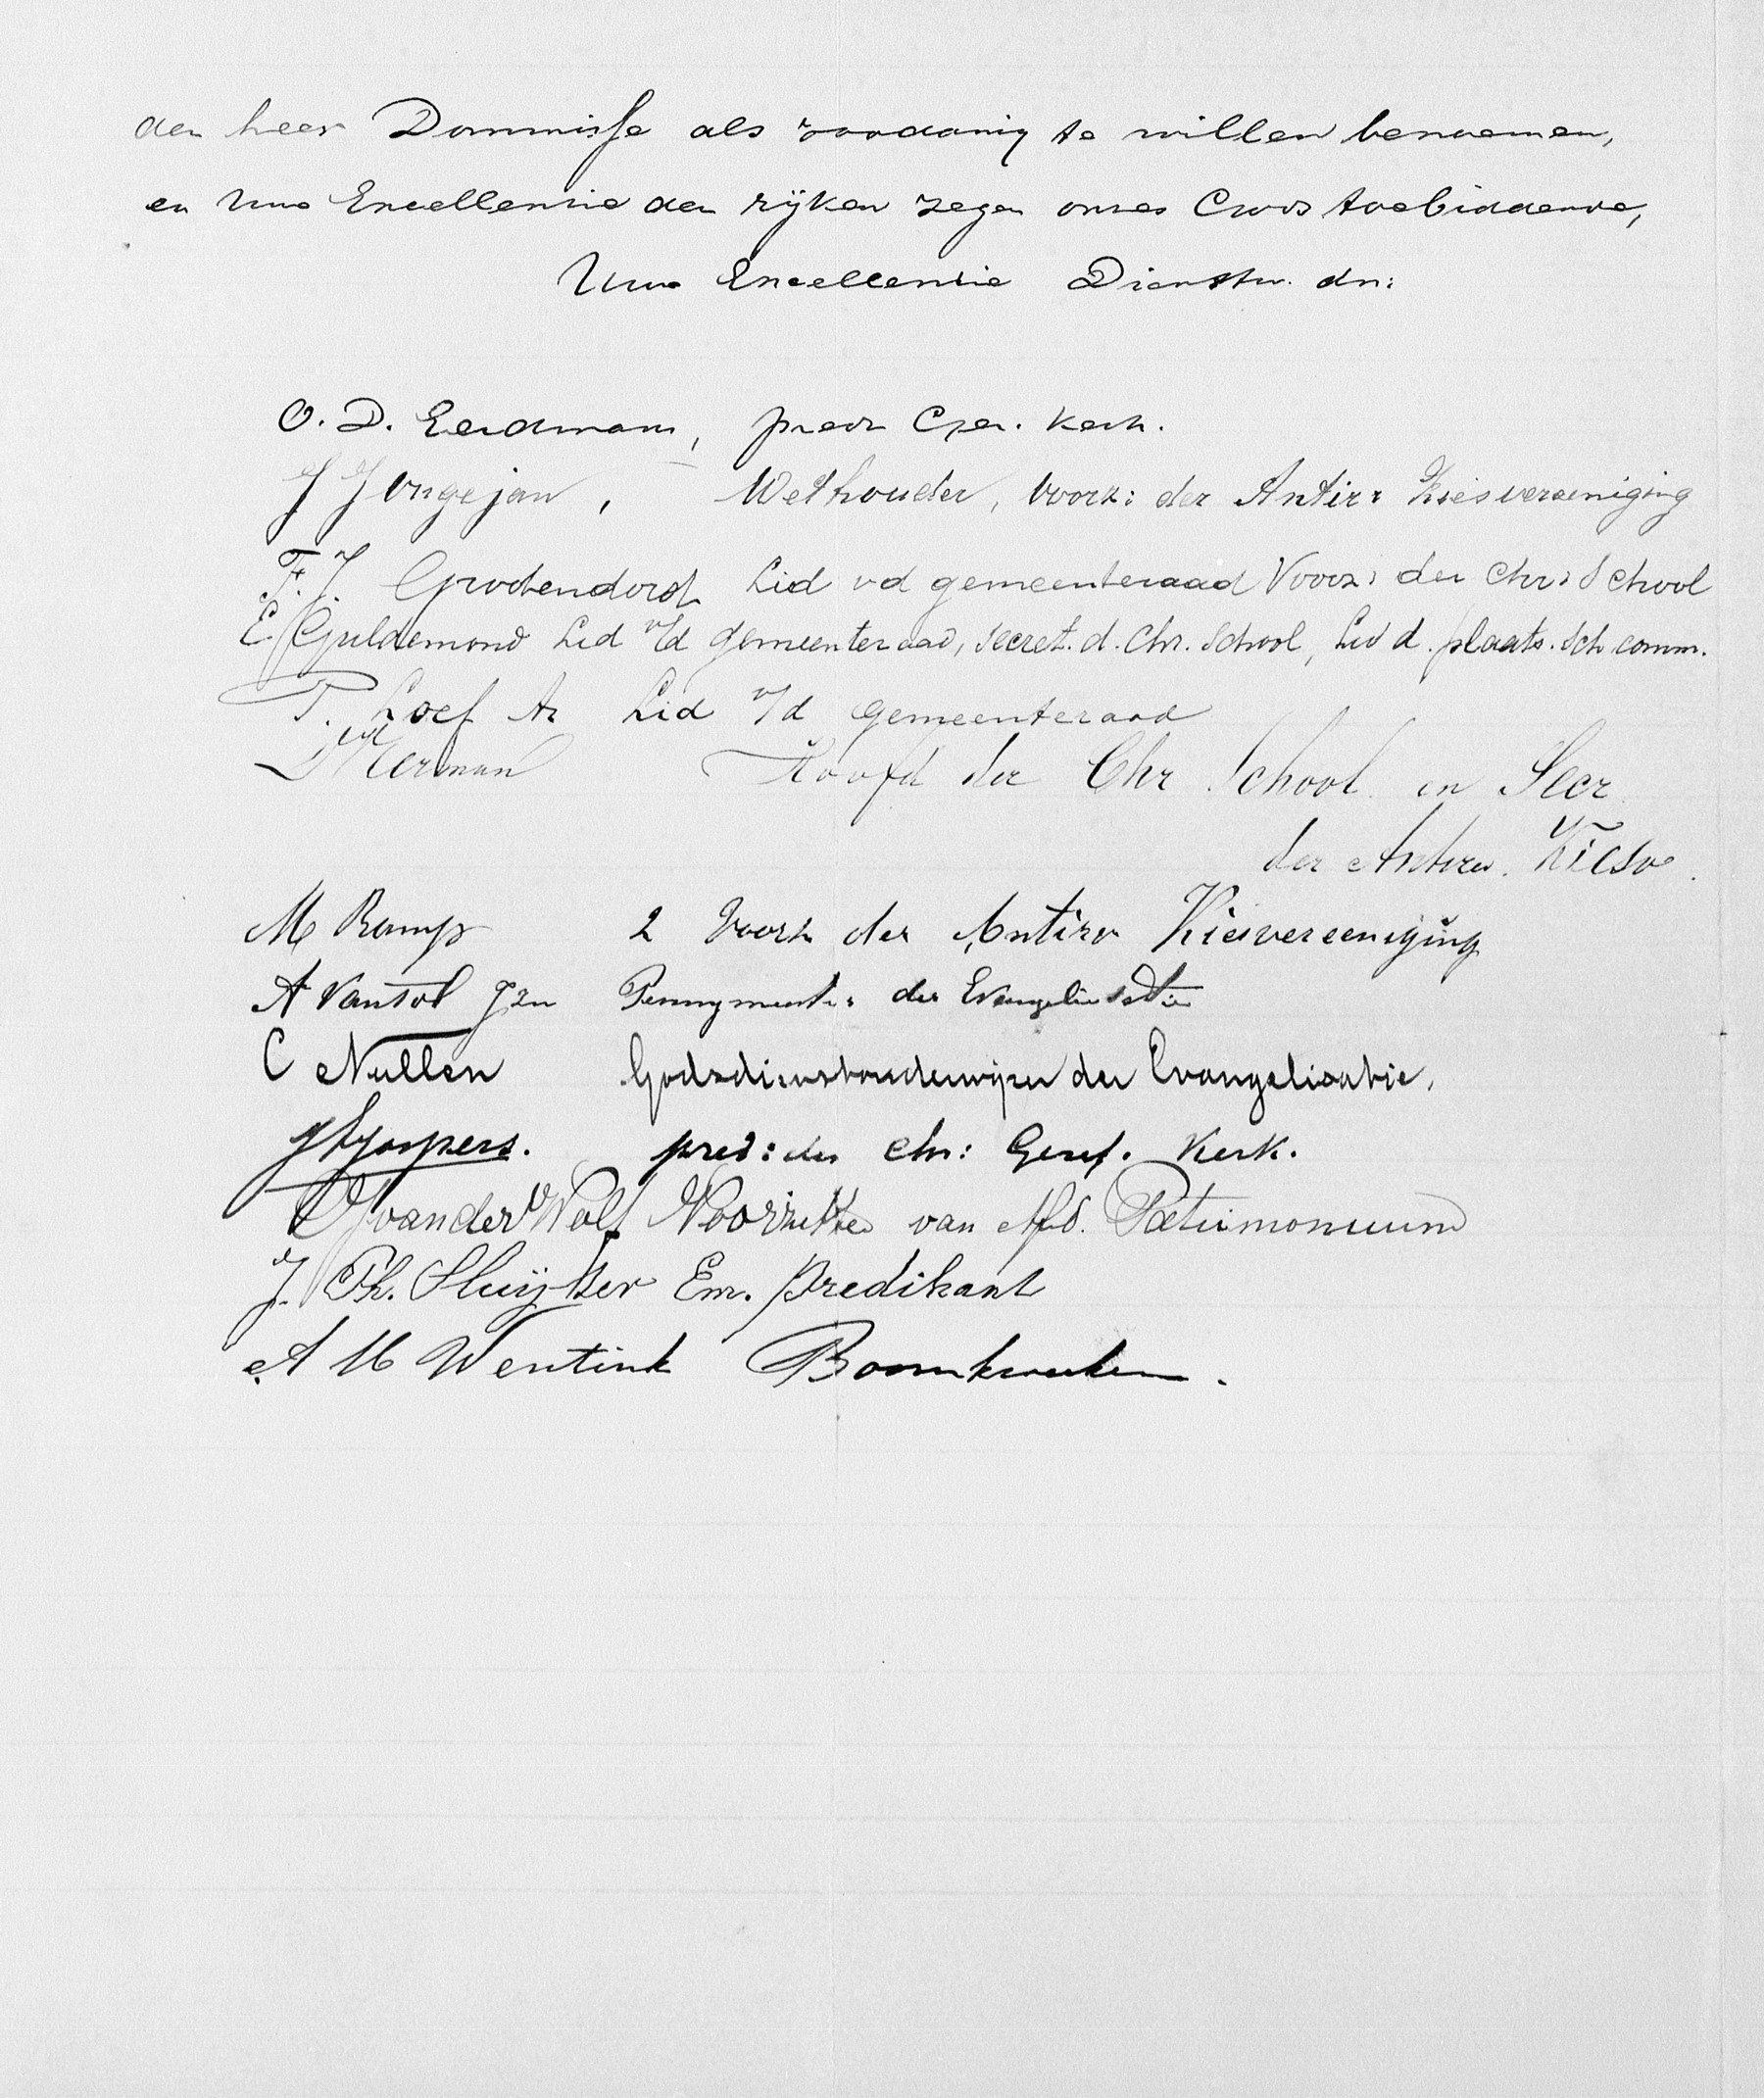 den heer Dommisse als zoodanig te willen benoemen,
en Uwe Excellentie den rijken zegen onzes Gods toebiddende,
Uwe Excellentie Dienstw. dn:
O. D. Eerdmans, pred Ger. Kerk.
J Jongejan, Wethouder, Voorz: der Antir: Kiesvereeniging
F. J. Grootendorst Lid vd gemeenteraad Voorz: der Chr: School
E Guldemond Lid v/d gemeenteraad, secret. d. Chr. School, Lid d. plaats. sch comm.
P. Loef Az Lid v/d gemeenteraad
Herman Hoofd der Chr School en Secr
der Antirev. Kiesv.
M Ramp 2 Voorz der Antirv Kiesvereeniging
A van Tol Jzn Penningmeester der Evangelisatie
C Nullen Godsdienstonderwijzer der Evangelisatie.
Jaspers. pred: der Chr: Geref. Kerk.
van der Wolf Voorzitter van Afd. Patrimonium
J. Th. Sluijter Em. Predikant
A M Wentink Boomkweeker.